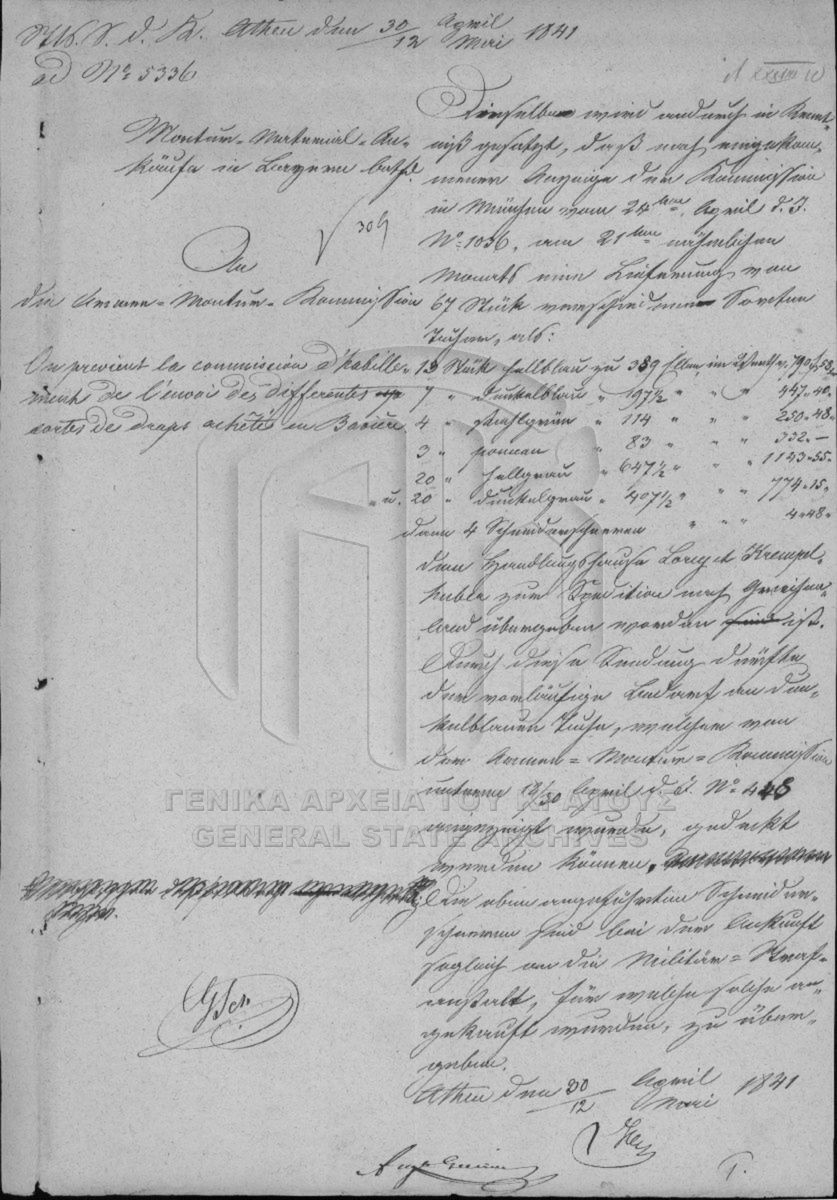 Athen den 30/12 April/Mai 1841
ad No 5336
Montur-Material-An-
käufe in Bayern betfd.
An
die Armee-Montur-Kommission
On previent la commission d'habille-
ment de l'envoi des differentes
sortes de draps achetés en Bavière
Dieselbe wird andurch in Kennt-
niß gesetzt, daß nach eingekom-
mener Anzeige der Kommission
in München vom 24ten April d. J.
No 1036, am 21ten nähmlichen
Monats eine Lieferung von
67 Stück verschiedener Sorten
Tücher, als:
13 Stück hellblau zu 389 Ellen, im Werthe
7 " dunkelblau " 197½ " " " 447.40.
4 " stahlgrün " 114 " " " 250.48.
3 " " 83 " " " 332.—
20 " hellgrau " 647½ " " " 1143.55.
u. 20 " dunkelgrau " 407½ " " " 774.15.
dann 4 Schneiderscheeren " " " 4.48.
dem Handlungshause Lorey et Krempel-
huber zur Spedition nach Griechen-
land übergeben worden ist.
Durch diese Sendung dürfte
der vorläufige Bedarf an dun-
kelblauen Tuche, welcher von
der Armee-Montur-Kommission
unterm 18/30 April d. J. No 448
angezeigt wurde, gedeckt
werden können.
Die oben angeführten Schneider-
scheeren sind bei der Ankunft
sogleich an die Militär-Straf-
anstalt, für welche solche an-
gekauft wurden, zu über-
geben.
Athen den 30/12 April/Mai 1841
ΓΕΝΙΚΑ ΑΡΧΕΙΑ ΤΟΥ ΚΡΑΤΟΥΣ
GENERAL STATE ARCHIVES